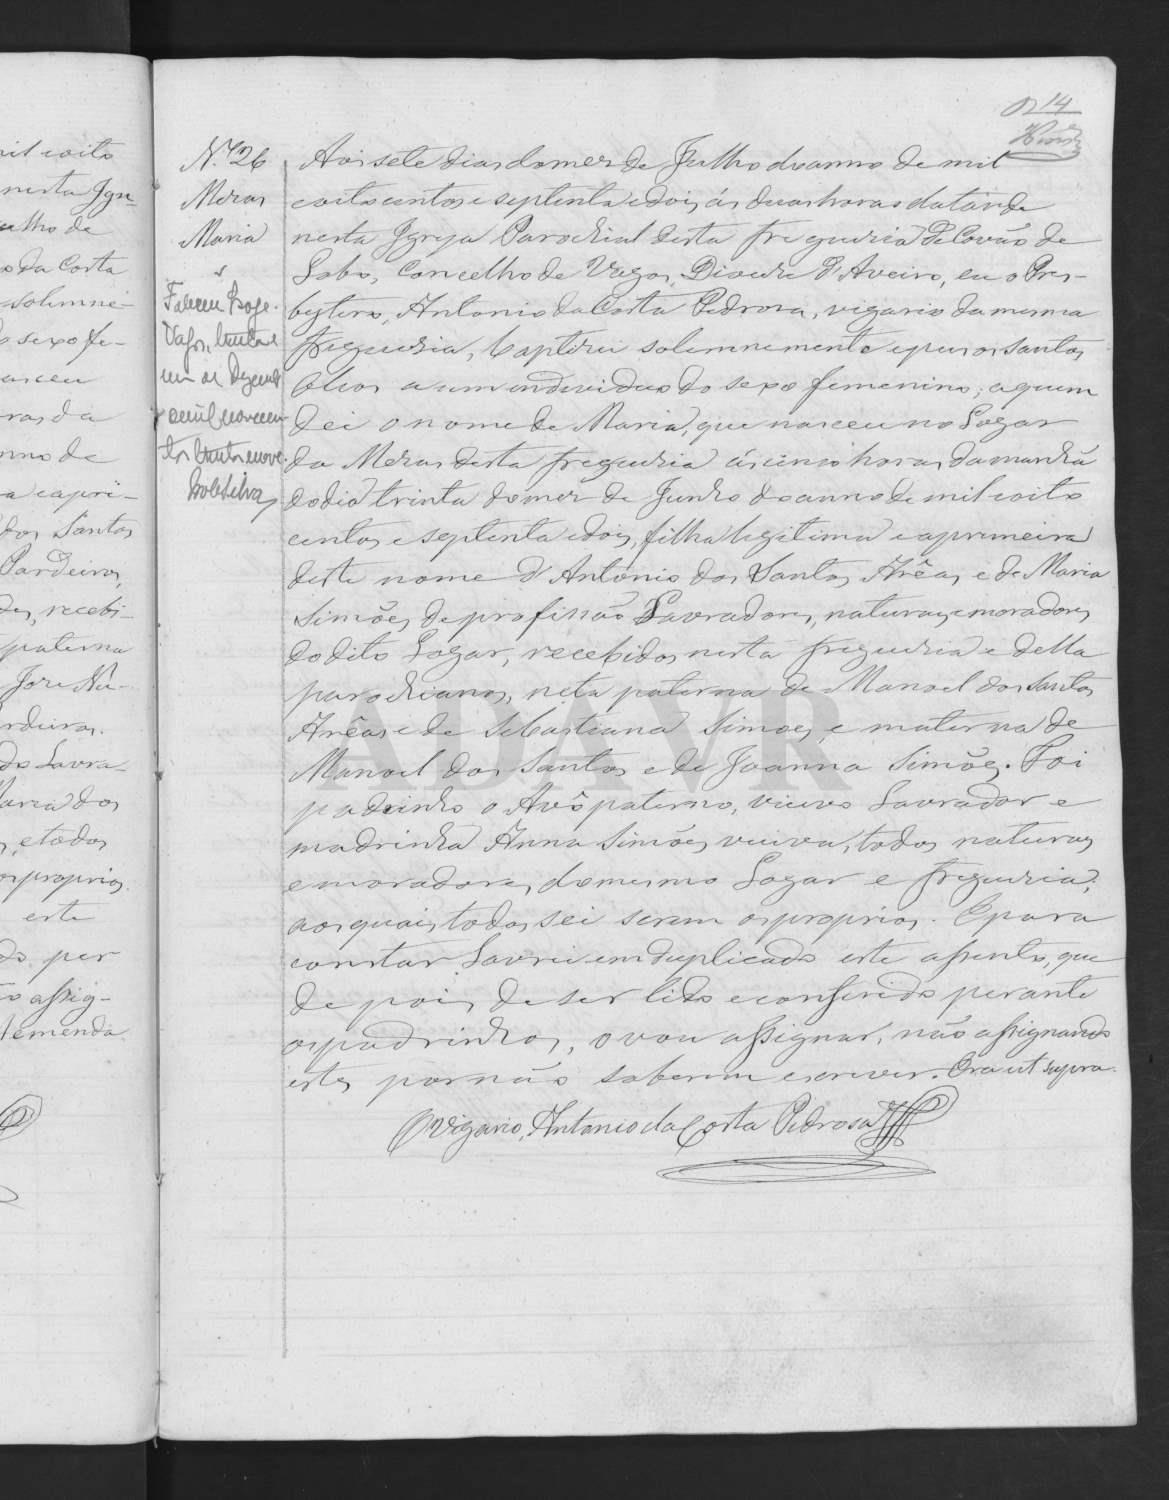 14
N.º 26
Mezas
Maria
Faleceu
Vagos, trinta e
um de Dezembro
de mil novecen-
tos trinta e nove.
Silva
Aos sete dias do mez de Julho do anno de mil
oito centos e septenta e dois, ás duas horas da tarde
nesta Igreja Parochial desta freguezia de Covão de
Lobo, Concelho de Vagos, Diocese d'Aveiro, eu o Pres-
bytero, Antonio da Costa Pedrosa, vigario da mesma
freguezia, baptizei solemnemente e puz os santos
Oleos a um individuo do sexo femenino, a quem
dei o nome de Maria, que nasceu no Logar
da Mezas desta freguezia ás cinco horas da manhã
do dia trinta do mez de Junho do anno de mil oito
centos e septenta e dois, filha legitima e a primeira
deste nome d'Antonio dos Santos Arêas e de Maria
Simões, de profissão Lavradores, naturaes e moradores
do dito Logar, recebidos nesta freguezia e della
parochianos, neta paterna de Manoel dos Santos
Arêas e de Sebastiana Simões, e materna de
Manoel dos Santos e de Joanna Simões. Foi
padrinho o Avô paterno, viuvo Lavrador e
madrinha Anna Simões, viuva, todos naturaes
e moradores, do mesmo Logar e freguezia,
aos quais todos sei serem os proprios. E para
constar lavrei em duplicado este assento, que
depois de ser lido e conferido perante
os padrinhos, o vou assignar, não assignando
estes por não saberem escrever. Era ut supra.
O Vigario, Antonio da Costa Pedrosa
ADAVR
mil oito
nesta Igre-
celho de
o da Costa
solemne-
do sexo fe-
nasceu
ras da
nno de
dos Santos
Pardeiros,
des, recebi-
paterna
do Lavra-
Maria dos
e todos
os proprios.
este
do per
assig-